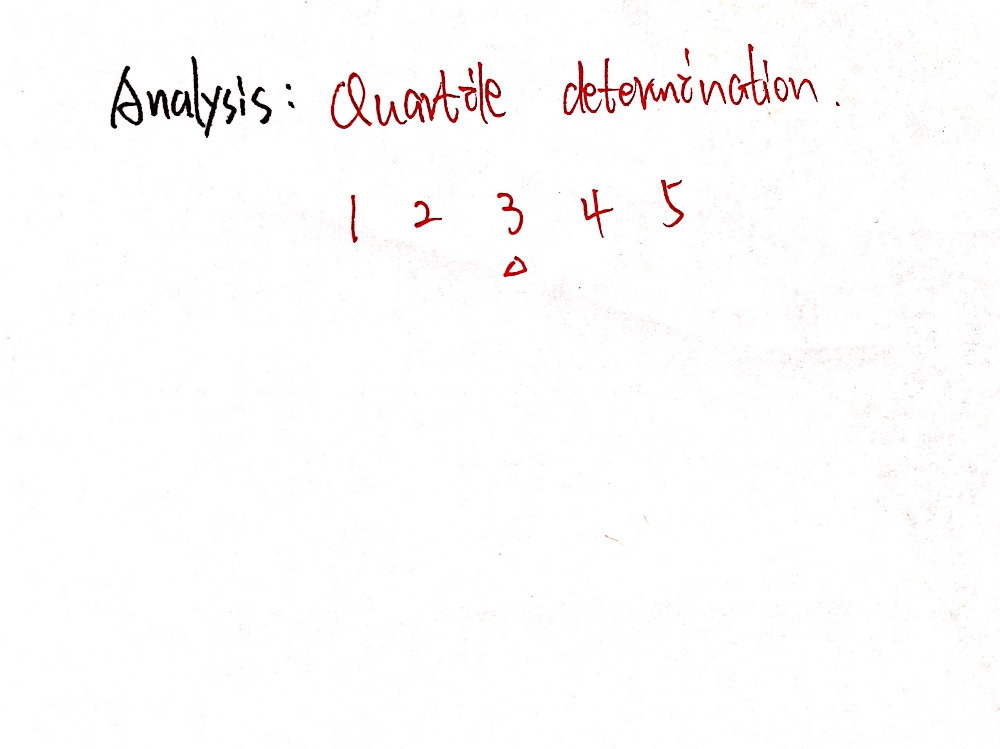 Analysis: Quartile determination.
1 2 3 4 5
△